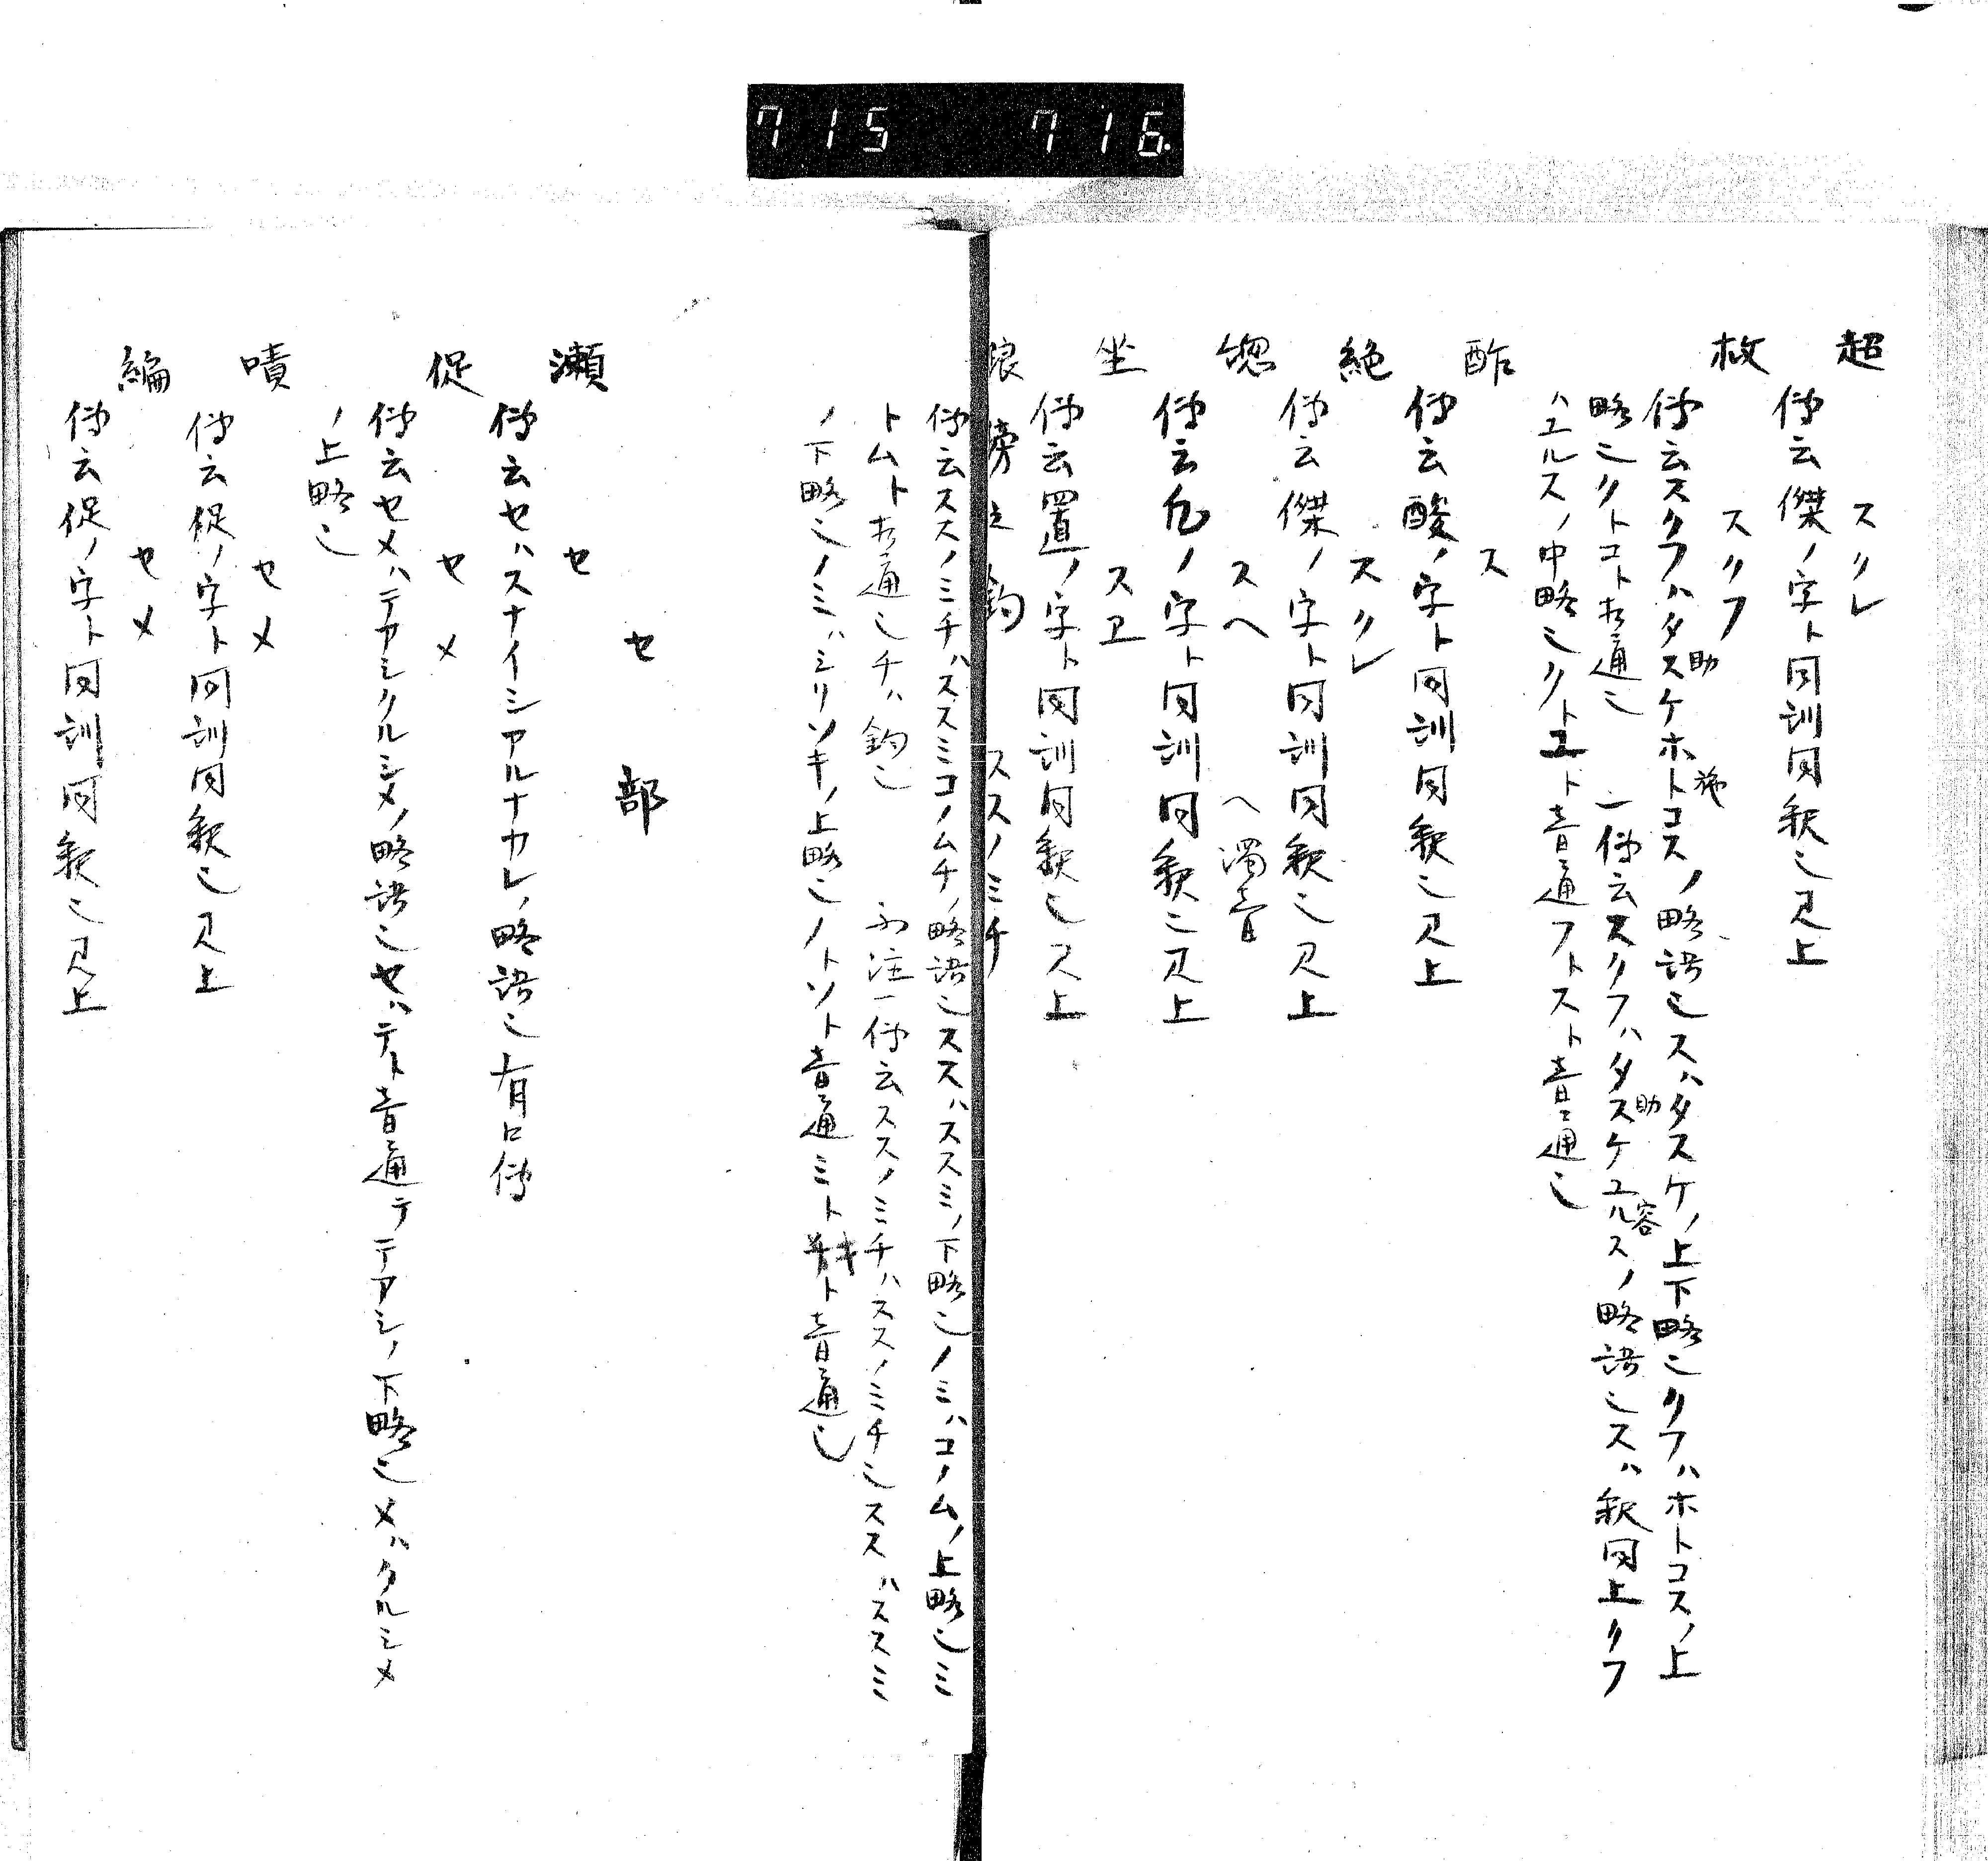 715 716
超 スクレ
伝云傑ノ字ト同訓同釈也見上
救 スクフ
伝云スクフハタスケ助ホトコス施ノ略語也スハタスケノ上下略也クフハホトコスノ上
略也クトコト相通也 一伝云スクフハタスケ助ユルス容ノ略語也スハ釈同上クフ
ハユルスノ中略也クトユト音通フトスト音通也
酢 ス
伝云酸ノ字ト同訓同釈也見上
絶 スクレ
伝云傑ノ字ト同訓同釈也見上
スヘ ヘ濁音
伝云凡ノ字ト同訓同釈也見上
坐 スヱ
伝云置ノ字ト同訓同釈也見上
ススノミチ
伝云ススノミチハススミコノムチノ略語也ススハススミノ下略也ノミハコノムノ上略也ミ
トムト相通也チハ鈎也 一伝云ススノミチハススノミチ也ススハススミ
ノ下略也ノミハシリソキノ上略也ノトソト音通ミトキト音通也
セ部
瀬 セ
伝云セハスナイシアルナカレノ略語也有口伝
促 セメ
伝云セメハテアシクルシメノ略語也セハテト音通テテアシノ下略也メハクルシメ
ノ上略也
嘖 セメ
伝云促ノ字ト同訓同釈也見上
編 セメ
伝云促ノ字ト同訓同釈也見上